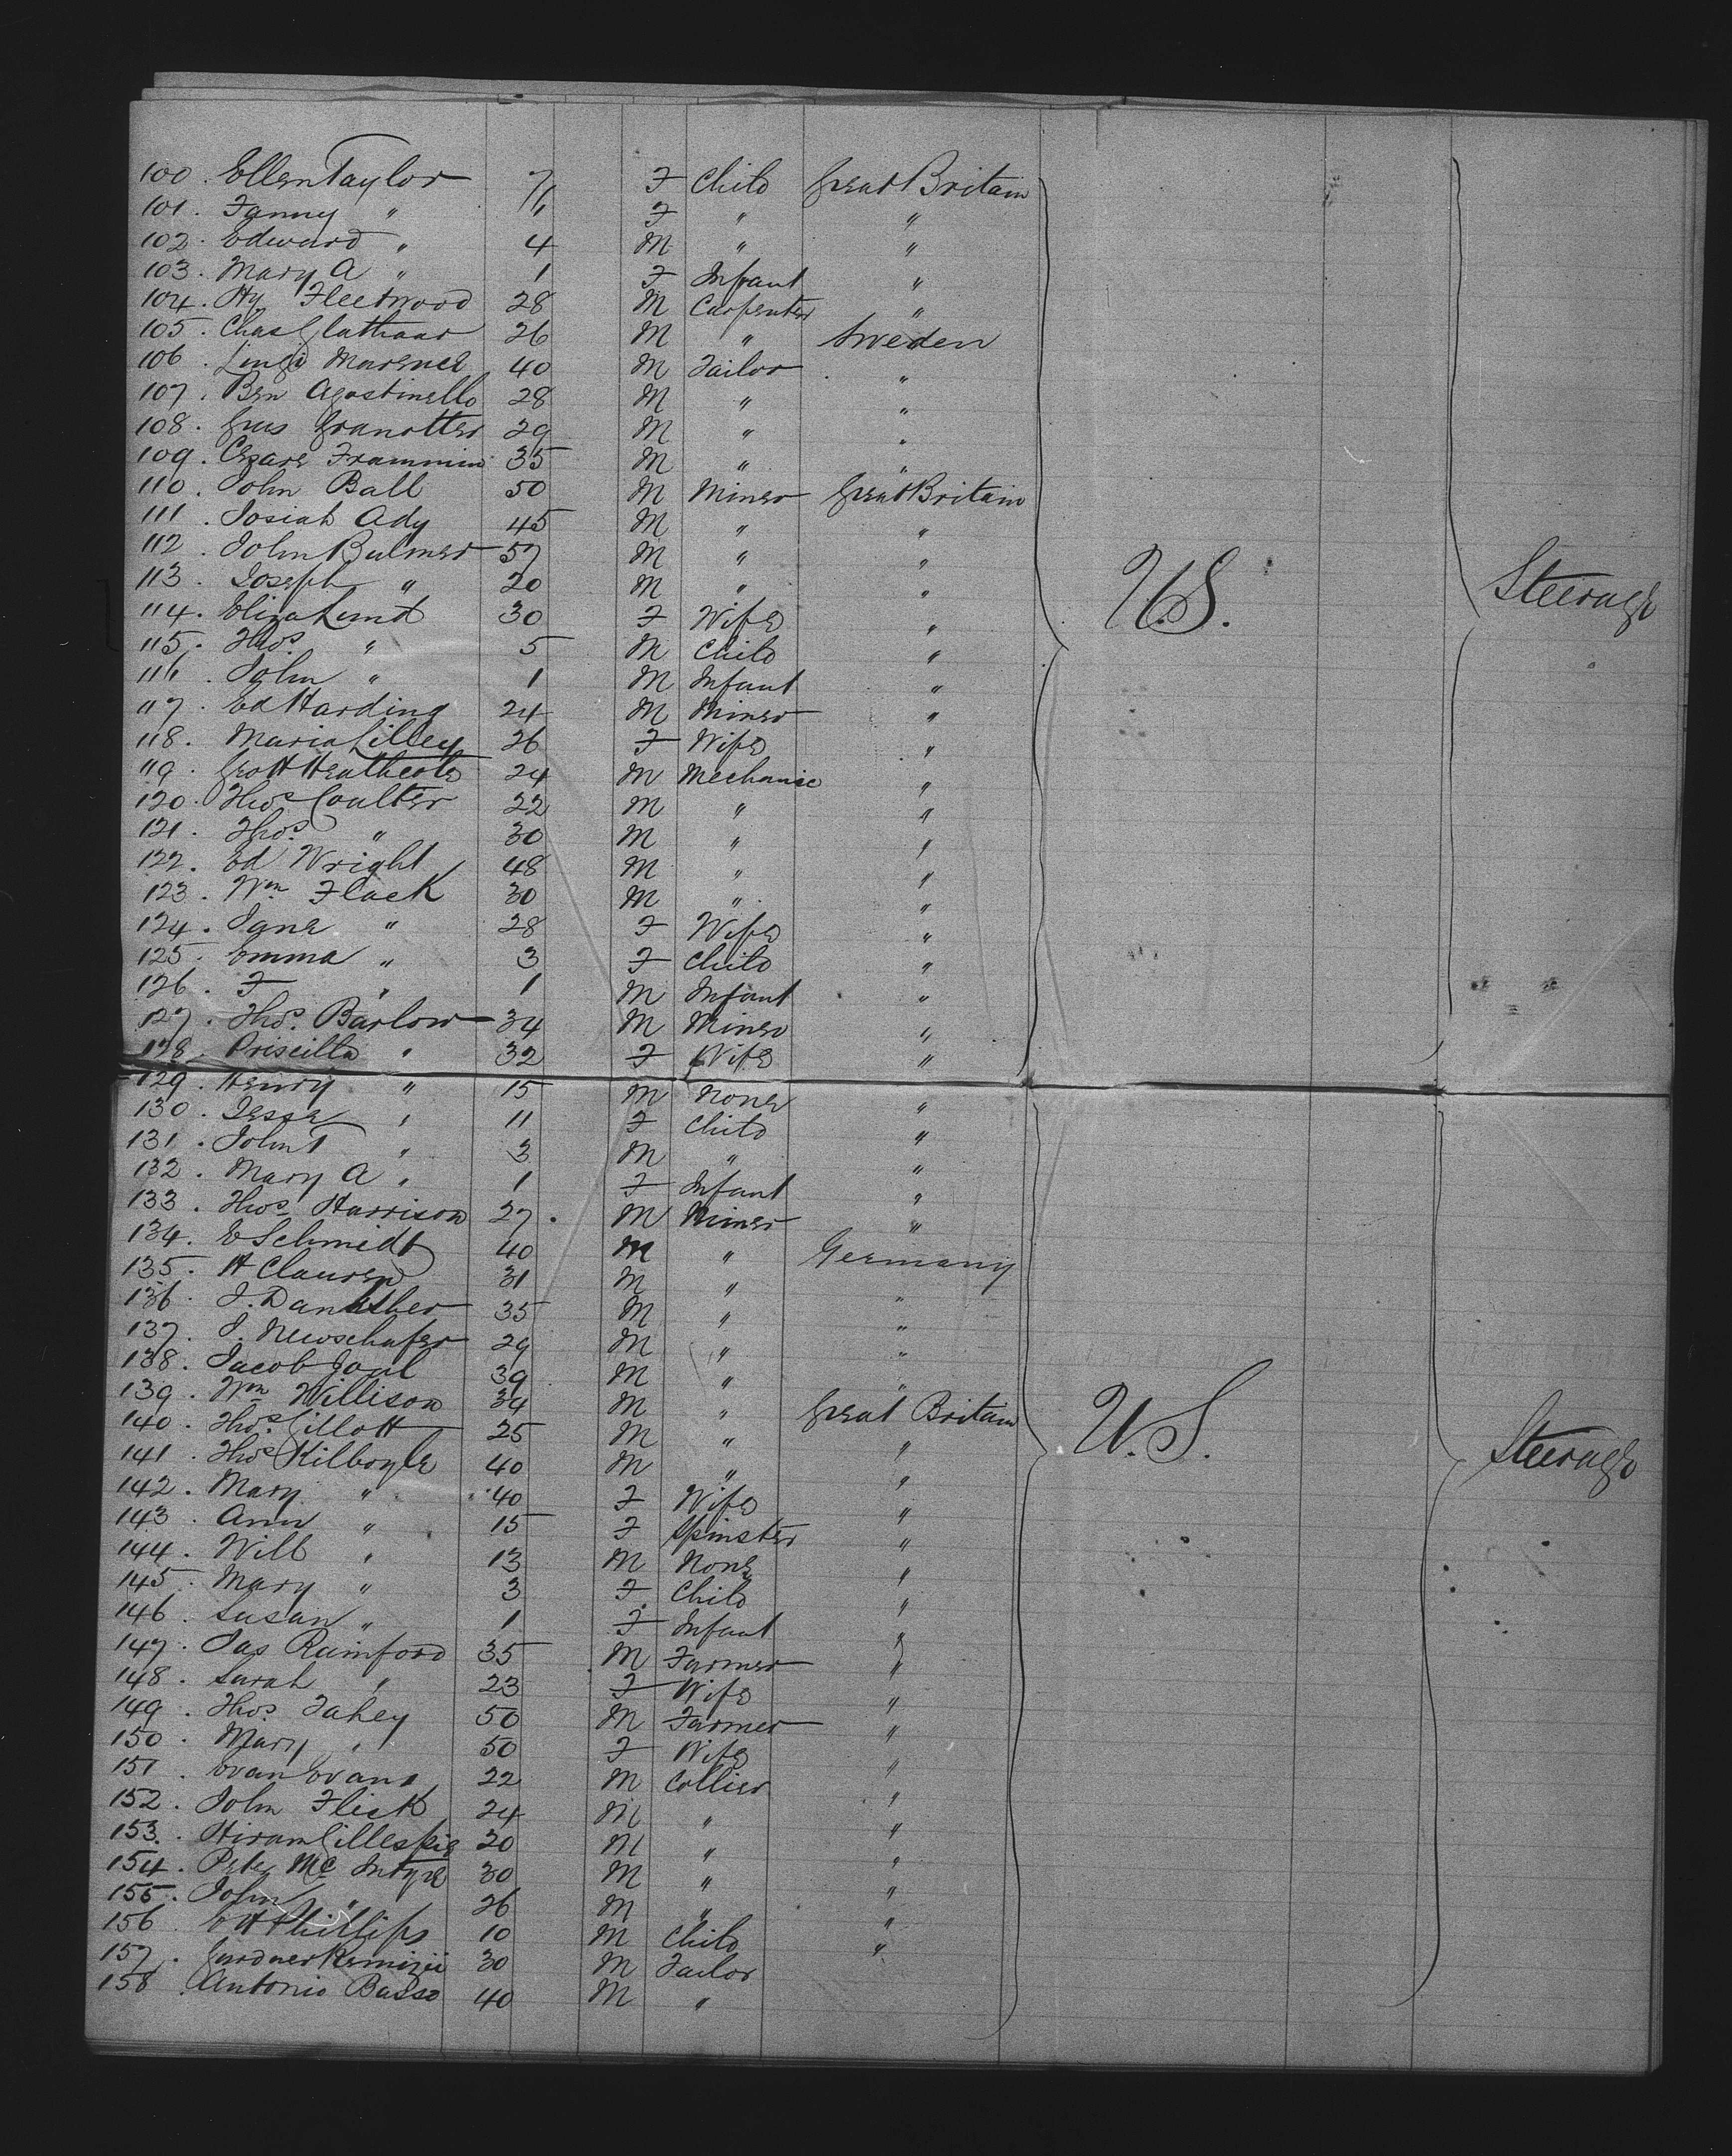 100. Ellen Taylor 7 F Child Great Britain
101. Fanny " 6 F " "
102. Edward " 4 M " "
103. Mary A " 1 F Infant "
104. Hy Fleetwood 28 M Carpenter "
105. Chas Glathaar 26 M " Sweden
106. 40 M Tailor "
107. Ben Agostinello 28 M " "
108. Gus Granotter 29 M " "
109. Cezare Frammin 35 M " "
110. John Ball 50 M Miner Great Britain
111. Josiah Ady 45 M " "
112. John Bulmer 57 M " "
113. Joseph " 20 M " "
U.S. Steerage
114. Eliza Lund 30 F Wife "
115. Thos. " 5 M Child "
116. John " 1 M Infant "
117. Ed Harding 24 M Miner "
118. Maria Lilley 26 F Wife "
119. Geo H Heathcote 24 M Mechanic "
120. Thos Coulter 22 M " "
121. Thos. " 30 M " "
122. Ed Wright 48 M " "
123. Wm Flack 30 M " "
124. Jane " 28 F Wife "
125. Emma " 3 F Child "
126. F " 1 M Infant "
127. Thos. Barlow 34 M Miner "
128. Priscilla " 32 F Wife "
129. Henry " 15 M None "
130. Jesse " 11 F Child "
131. John T " 3 M " "
132. Mary A " 1 F Infant "
133. Thos. Harrison 27. M Miner "
134. E Schmidt 40 M " Germany
135. H Clausen 31 M " "
136. J. 35 M " "
137. J. Newschafer 29 M " "
138. Jacob Joal 39 M " "
139. Wm Willison 34 M " Great Britain
140. Thos. Gillott 25 M " "
U.S. Steerage
141. Thos Kilboyle 40 M " "
142. Mary " 40 F Wife "
143. Ann " 15 F Spinster "
144. Will " 13 M None "
145. Mary " 3 F Child "
146. Susan " 1 F Infant "
147. Jas Rumford 35 M Farmer "
148. Sarah " 23 F Wife "
149. Thos. Fahey 50 M Farmer "
150. Mary " 50 F Wife "
151. Evan Evans 22 M Collier "
152. John Flick 24 M " "
153. Hiram Gillespie 20 M " "
154. Peter McIntyre 30 M " "
155. John " 26 M " "
156. E H Phillips 10 M Child "
157. Gardner 30 M Tailor
158. Antonio Basso 40 M "